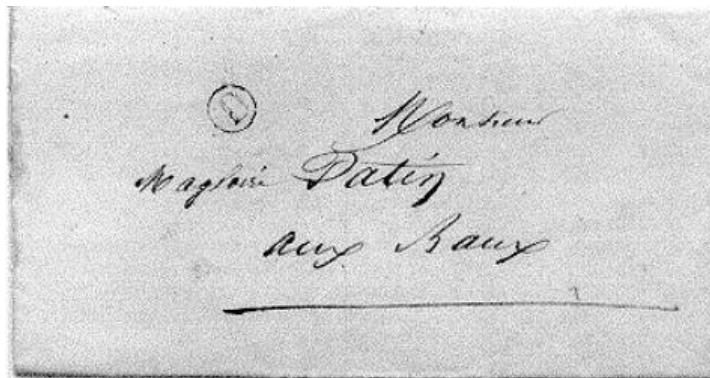 Monsieur
Magloire Patin
aux Raux